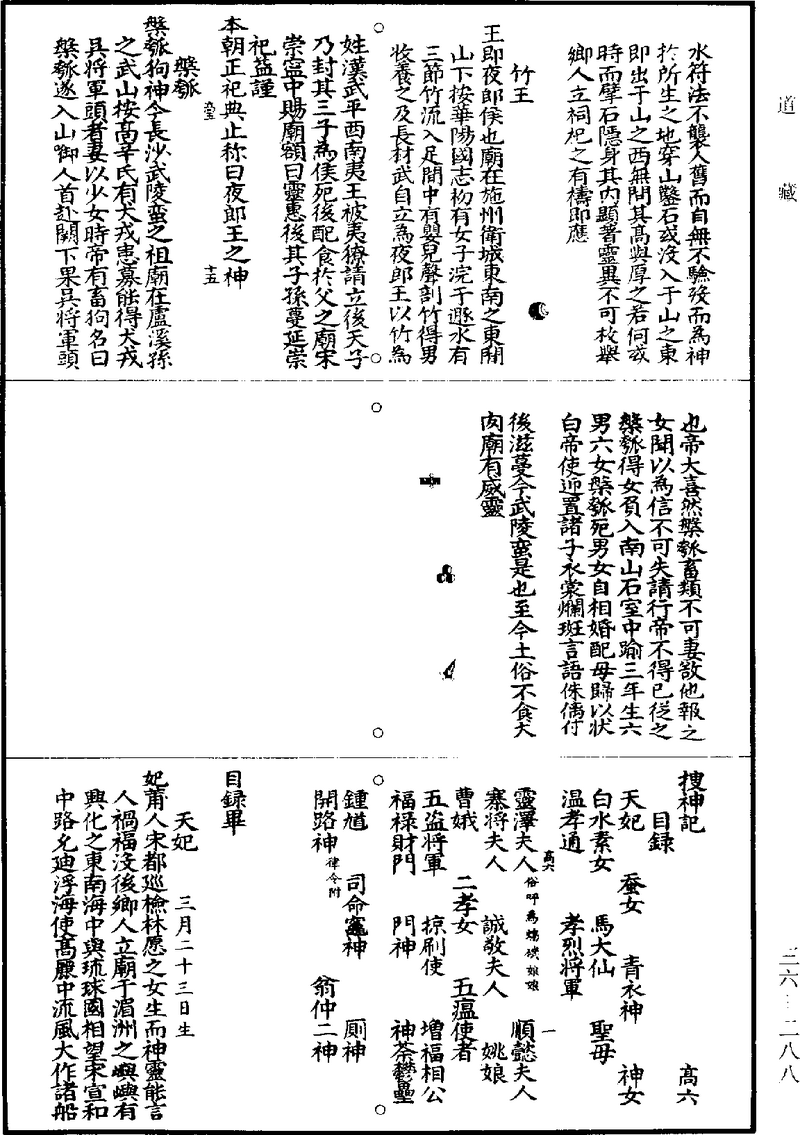 道藏
水符法不襲人舊而自無不驗歿而為神
於所生之地穿山鑿石或没入于山之東
即出于山之西無間其髙與厚之若何或
時而擘石隱身其内顯著靈異不可枚舉
鄉人立祠祀之有禱即應
竹王
王即夜郎侯也廟在施州衛城東南之東關
山下按華陽國志初有女子浣于遯水有
三節竹流入足間中有嬰兒聲剖竹得男
收養之及長材武自立為夜郎王以竹為
姓漢武平西南夷王被夷獠請立後天子
乃封其三子為侯死後配食於父之廟宋
崇寧中賜廟額曰靈惠後其子孫蔓延崇
祀益謹
本朝正祀典止称曰夜郎王之神
槃瓠
槃瓠狗神今長沙武陵蛮之祖廟在盧溪孫
之武山按髙辛氏有犬戎患募能得犬戎
吳將軍頭者妻以少女時帝有畜狗名曰
槃瓠遂入山啣人首赴闕下果吳將軍頭
也帝大喜然槃瓠畜類不可妻欲他報之
女聞以為信不可失請行帝不得已從之
槃瓠得女負入南山石室中踰三年生六
男六女槃瓠死男女自相婚配母歸以状
白帝使迎置諸子衣裳爛斑言語侏㒧付
後滋蔓今武陵蛮是也至今土俗不食犬
肉廟有威靈
搜神記 髙六
目録
天妃 蚕女 青衣神 神女
白水素女 馬大仙 聖母
温孝通 孝烈將軍
靈澤夫人 俗呼為娘娘 順懿夫人
寨將夫人 誠敬夫人 姚娘
曹娥 二孝女 五瘟使者
五盗將軍 掠刷使 增福相公
福禄財門 門神 神荼鬱壘
鍾馗 司命竈神 厠神
開路神 律令附 翁仲二神
目録畢
天妃 三月二十三日生
妃莆人宋都廵檢林愿之女生而神靈能言
人禍福没後鄉人立廟于湄洲之嶼嶼有
興化之東南海中與琉球國相望宋宣和
中路允廸浮海使髙麗中流風大作諸船
三六-二八八